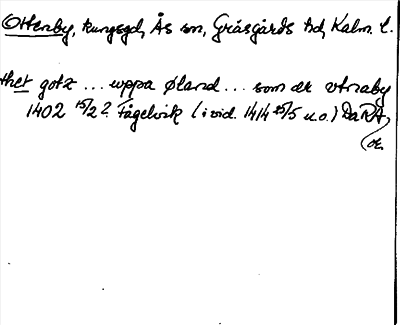 Ottenby, kungsgd, Ås sn, Gräsgårds hd, Kalm. l.
thet gotz ... uppa Øland ... som ær vtnaby
1402 15/2 ? Fågelvik (i vid. 1414 25/5 u.o.) Da RA,
or.